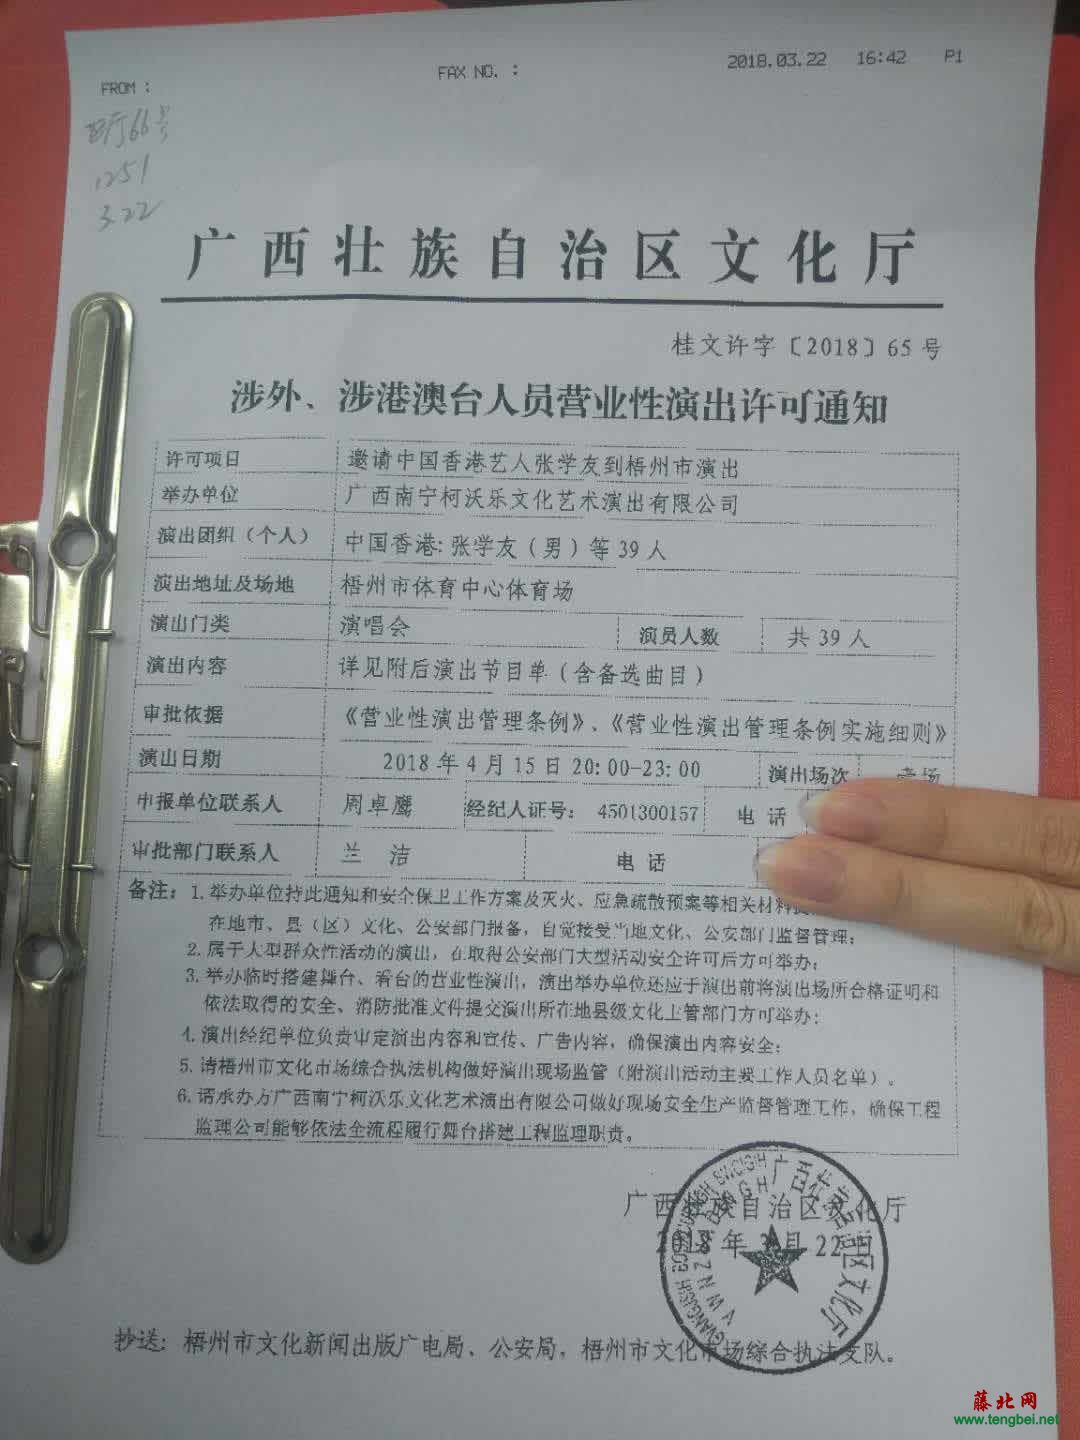 FROM :
FAX NO. :
2018.03.22 16:42 P1
66号
1251
3.22
广西壮族自治区文化厅
桂文许字〔2018〕65号
涉外、涉港澳台人员营业性演出许可通知
许可项目 邀请中国香港艺人张学友到梧州市演出
举办单位 广西南宁柯沃乐文化艺术演出有限公司
演出团组（个人） 中国香港:张学友（男）等39人
演出地址及场地 梧州市体育中心体育场
演出门类 演唱会 演员人数 共39人
演出内容 详见附后演出节目单（含备选曲目）
审批依据 《营业性演出管理条例》、《营业性演出管理条例实施细则》
演出日期 2018年4月15日20:00-23:00 演出场次 壹场
申报单位联系人 周卓鹰 经纪人证号： 4501300157 电话
审批部门联系人 兰 洁 电话
备注：1.举办单位持此通知和安全保卫工作方案及灭火、应急疏散预案等相关材料
在地市、县（区）文化、公安部门报备，自觉接受当地文化、公安部门监督管理；
2.属于大型群众性活动的演出，在取得公安部门大型活动安全许可后方可举办；
3.举办临时搭建舞台、看台的营业性演出，演出举办单位还应于演出前将演出场所合格证明和
依法取得的安全、消防批准文件提交演出所在地县级文化主管部门方可举办；
4.演出经纪单位负责审定演出内容和宣传、广告内容，确保演出内容安全；
5.请梧州市文化市场综合执法机构做好演出现场监管（附演出活动主要工作人员名单）。
6.请承办方广西南宁柯沃乐文化艺术演出有限公司做好现场安全生产监督管理工作，确保工程
监理公司能够依法全流程履行舞台搭建工程监理职责。
广西壮族自治区文化厅
2018年3月22日
广西壮族自治区文化厅
抄送：梧州市文化新闻出版广电局、公安局，梧州市文化市场综合执法支队。
藤北网
www.tengbei.net